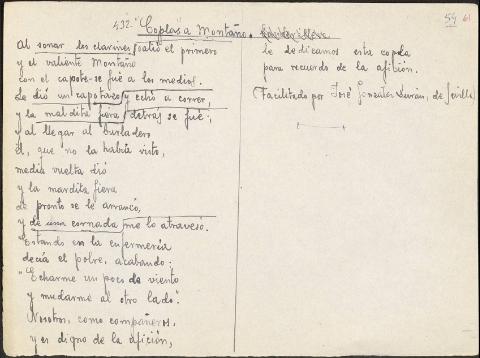 432. "Coplas a Montaño.
54 61
Al sonar los clarines salió el primero
y el valiente Montaño
con el capote se fué a los medios.
Le dió un capotazo y echó a correr,
y la maldita fiera detrás se fué;
y al llegar al burladero
él, que no la había visto,
media vuelta dió
y la mardita fiera
de pronto se le arrancó,
y de una cornada me lo atravesó.
Estando en la enfermería
decía el pobre, acabando:
"Echarme un poco de viento
y mudarme al otro lado".
Nosotros, como compañeros,
y es digno de la afición,
le dedicamos esta copla
para recuerdo de la afición.
(Facilitado por José González Durán, de Sevilla)